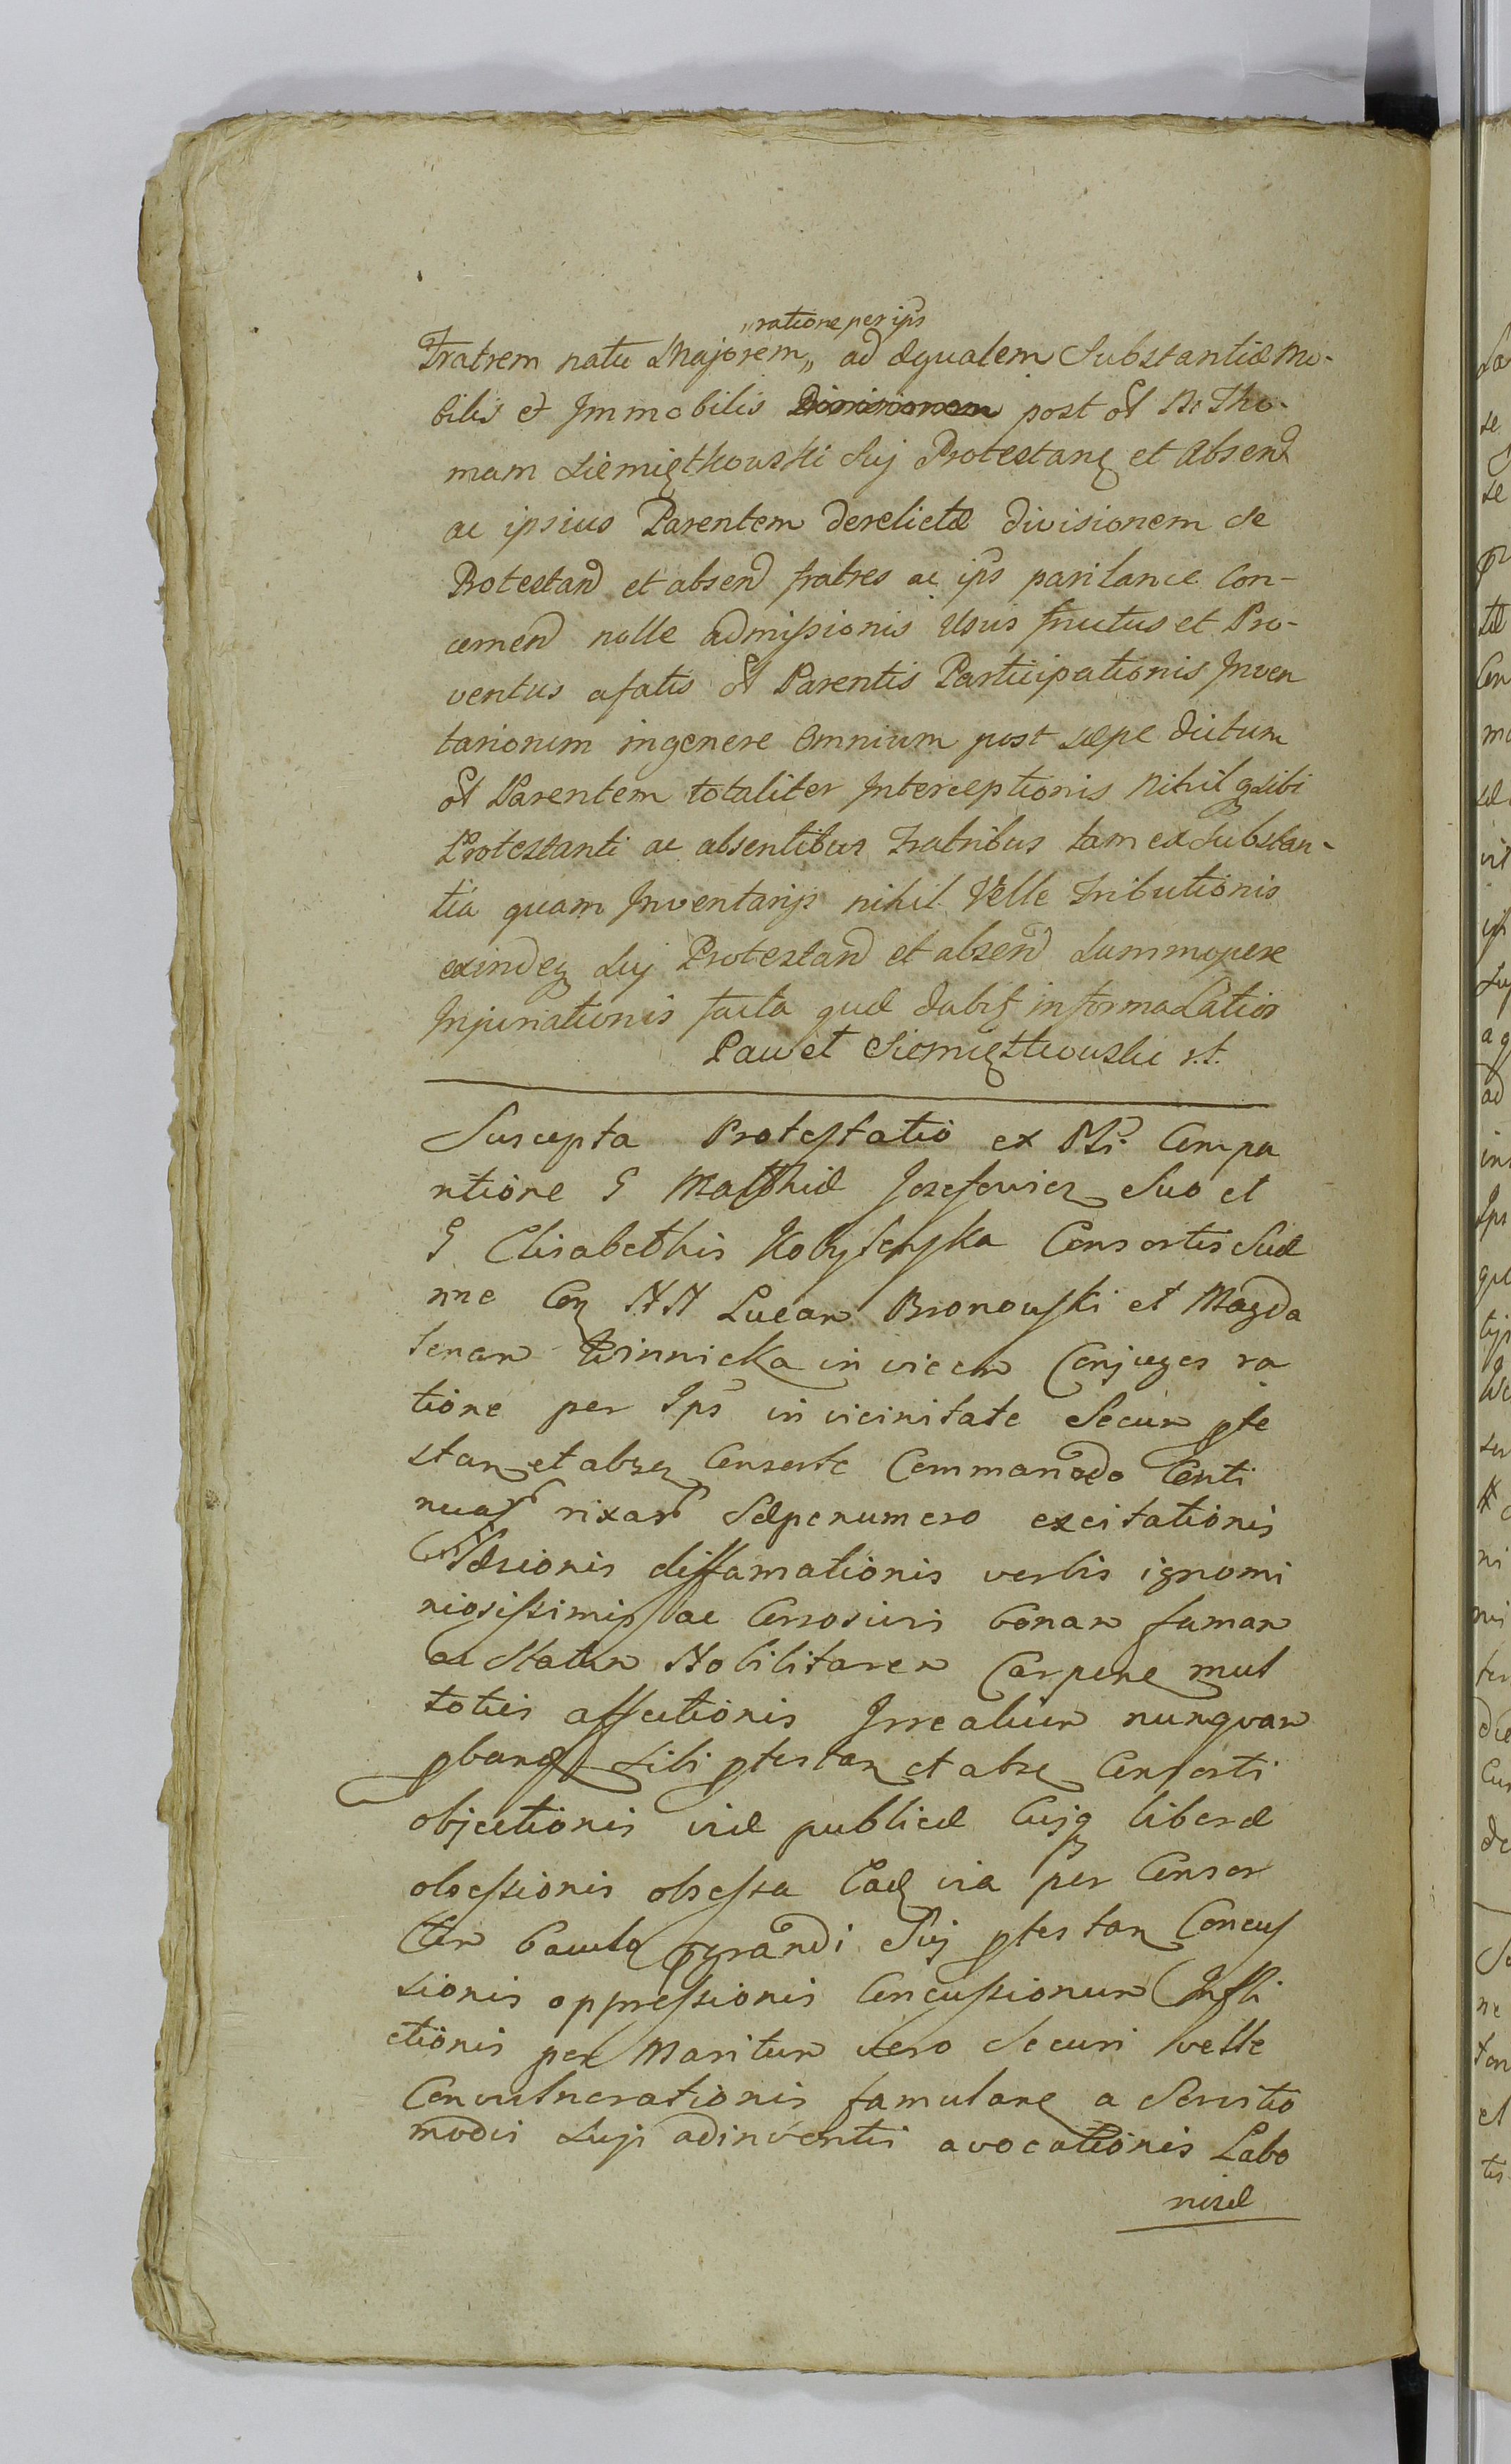 „ratione per ips
Fratrem natu Majorem„ ad æqualem Substantiæ Mo-
bilis et Immobilis Divisionem post ol N Tho-
mam Siemiętkowski Suj Protestanę et Absend
ac ipsius Parentem derelictæ divisionem se
Protestand et absend fratres ac ips pari lance Con-
cernend nolle admissionis Usus fructus et Pro-
ventus afatis ol Parentis Participationis Inven
tariorum in genere omnium post sæpe dictum
ol Parentem totaliter Interceptionis Nihil q sibi
Protestanti ac absentibus Fratribus tam ex Substan-
tia quam Inventarijs nihil Velle tributionis
exindeq Suj Protestand et absend Summopere
Injuriationis facta quæ dabit informa Latior
Paweł Siemiętkowski
Suscepta Protestatio ex Compa
ritione G Matthiæ Josefowicz Suo et
G Elisabethis Kobyłeńska Consortis Suæ
nne Con NN Lucam Bronowski et Magda
lenam Winnicka in vicem Conjuges ra
tione per Ips in vicinitate Secum pte
stan et absen Consorte Commanodo Conti
nuas rixas Sæpenumero excitationis
Læsionis diffamationis verbis ignomi
niosissimis ac Corrosivis bonam famam
ac Statum Nobilitarem Carpene mul
toties affectionis Irreatum nunquam
pbanḑ Sibi ptestan et absen Consorti
objectionis viæ publicæ Cujq liberæ
obsessionis obsessa Eaq via per Consor
tem baculo grandi Suj ptestan Concus
sionis oppressionis Concussionum Infli
ctionis per Maritum vero Securi velle
Convulnerationis famulanę a Servitio
modis Sujs adinventis avocationis Labo
riosæ